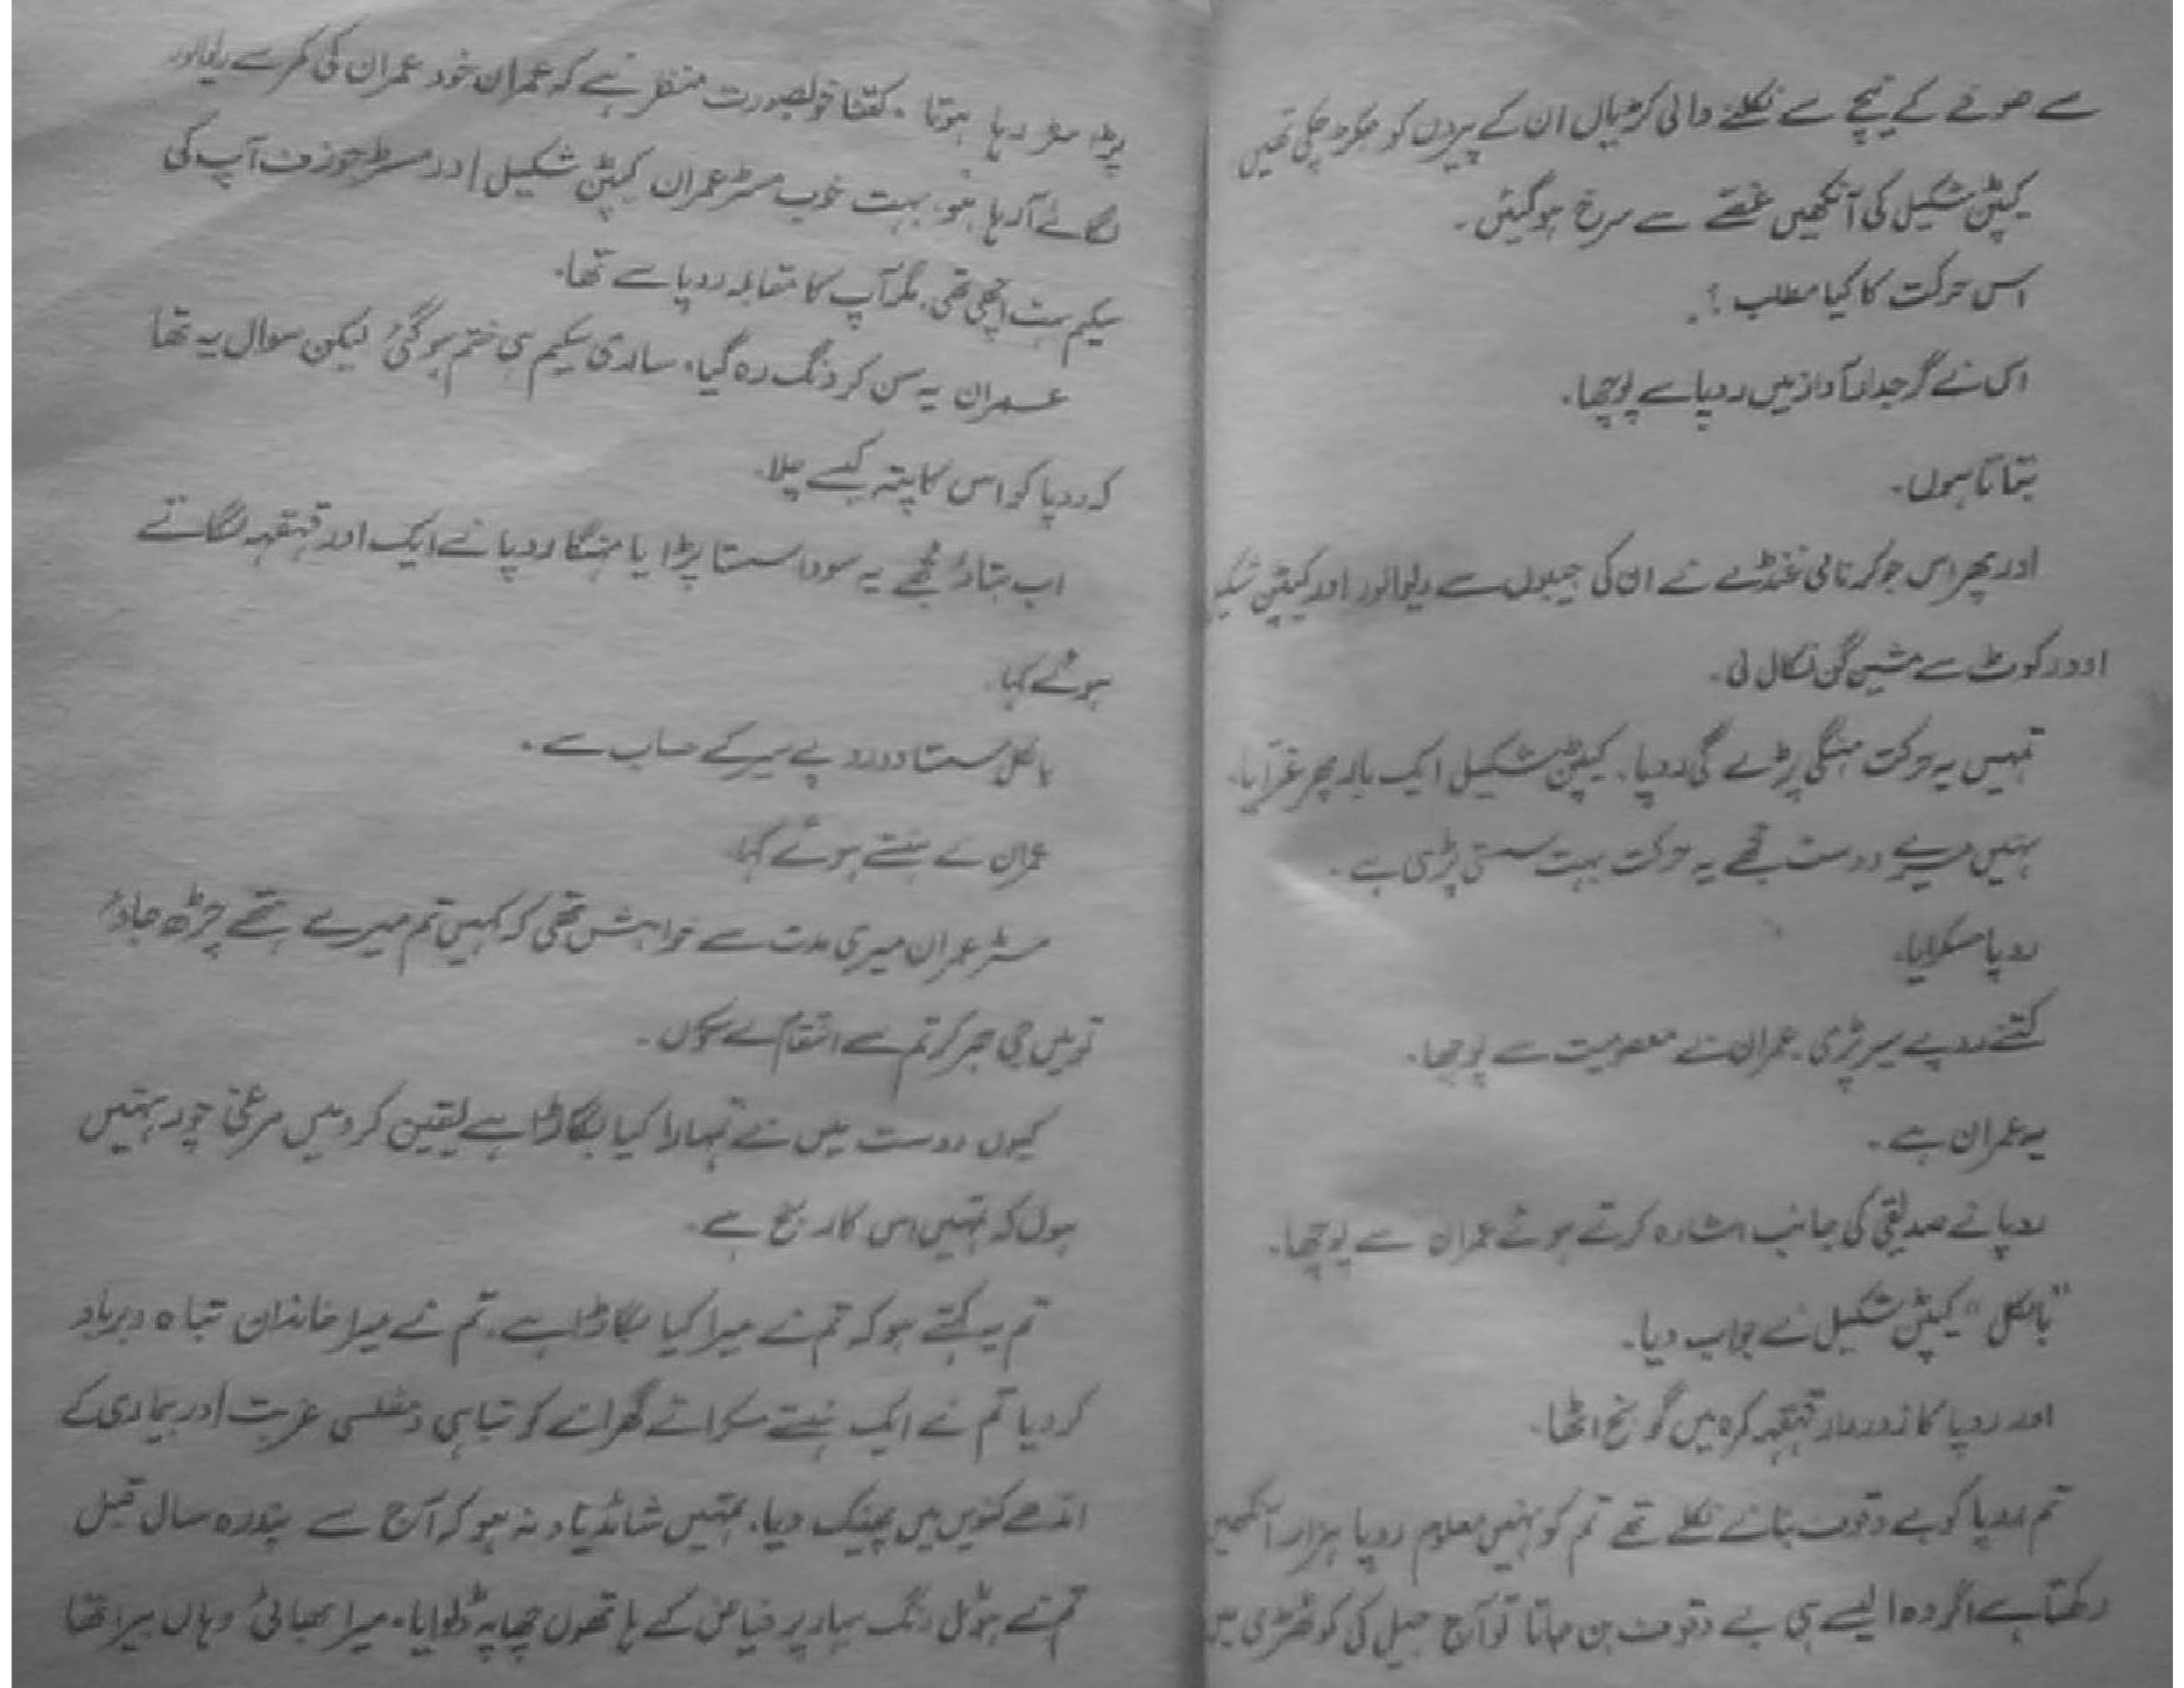 سے صوفے کے نیچے سے نکلنے والی کڑیاں ان کے پیروں کو جکڑ چکی تھیں
کیپٹن شکیل کی آنکھیں غصے سے سرخ ہو گئیں۔
اس حرکت کا کیا مطلب ؟
اس نے گرجدار آواز میں روپا سے پوچھا۔
بتاتا ہوں۔
اور پھر اس جوکر نامی غنڈے نے ان کی جیبوں سے ریوالور اور کیپٹن شکیل
اوور کوٹ سے مشین گن نکال لی۔
تمہیں یہ حرکت مہنگی پڑے گی روپا۔ کیپٹن شکیل ایک بار پھر غرایا۔
نہیں میرے دوست مجھے یہ حرکت بہت سستی پڑی ہے۔
روپا مسکرایا۔
کتنے روپے سیر پڑی۔ عمران نے معصومیت سے پوچھا۔
یہ عمران ہے۔
روپا نے صدیقی کی جانب اشارہ کرتے ہوئے عمران سے پوچھا۔
"بالکل" کیپٹن شکیل نے جواب دیا۔
اور روپا کا زوردار قہقہہ کمرہ میں گونج اٹھا۔
تم روپا کو بے وقوف بنانے نکلے تھے تم کو نہیں معلوم روپا ہزار آنکھیں
رکھتا ہے اگر وہ ایسے ہی بے وقوف بن جاتا تو آج جیل کی کوٹھڑی میں
پڑا سڑ رہا ہوتا۔ کتنا خوبصورت منظر ہے کہ عمران خود عمران کی کمر سے ریوالور
لگائے آ رہا ہو۔ بہت خوب مسٹر عمران کیپٹن شکیل اور مسٹر جوزف آپ کی
سکیم بہت اچھی تھی۔ مگر آپ کا مقابلہ روپا سے تھا۔
عمران یہ سن کر دنگ رہ گیا۔ ساری سکیم ہی ختم ہو گئی لیکن سوال یہ تھا
کہ روپا کو اس کا پتہ کیسے چلا۔
اب بتاؤ مجھے یہ سودا سستا پڑا یا مہنگا روپا نے ایک اور قہقہہ لگاتے
ہوئے کہا۔
بالکل سستا دو روپے سیر کے حساب سے۔
عمران نے ہنستے ہوئے کہا۔
مسٹر عمران میری مدت سے خواہش تھی کہ کہیں تم میرے ہتھے چڑھ جاؤ
تو میں جی بھر کر تم سے انتقام لے سکوں۔
کیوں دوست میں نے تمہارا کیا بگاڑا ہے یقین کرو میں مرغی چور نہیں
ہوں کہ تمہیں اس کا رنج ہے۔
تم یہ کہتے ہو کہ تم نے میرا کیا بگاڑا ہے۔ تم نے میرا خاندان تباہ و برباد
کر دیا تم نے ایک ہنستے مسکراتے گھرانے کو تباہی و مفلسی غربت اور بیماری کے
اندھے کنویں میں پھینک دیا۔ تمہیں شائد یاد نہ ہو کہ آج سے پندرہ سال قبل
تم نے ہوٹل رنگ بہار پر فیاض کے ہاتھوں چھاپہ ڈلوایا۔ میرا بھائی وہاں بیرا تھا